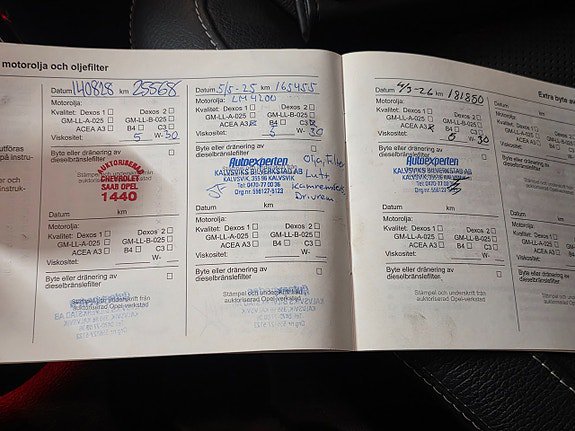 motorolja och oljefilter
utföras
på instruk-
instruk-
Datum 140828 km 25568
Motorolja:
Kvalitet: Dexos 1 Dexos 2
GM-LL-A-025 GM-LL-B-025
ACEA A3 B4 C3
Viskositet: 5 W- 30
Byte eller dränering av
dieselbränslefilter
AUKTORISERAD
CHEVROLET
SAAB OPEL
1440
Datum km
Motorolja:
Kvalitet: Dexos 1 Dexos 2
GM-LL-A-025 GM-LL-B-025
ACEA A3 B4 C3
Viskositet: W-
Byte eller dränering av
dieselbränslefilter
Stämpel och underskrift från
auktoriserad Opel-verkstad
Datum 5/5-25 km 165455
Motorolja: LM4200
Kvalitet: Dexos 1 Dexos 2
GM-LL-A-025 GM-LL-B-025
ACEA A3 B4 C3
Viskositet: 5 W- 30
Byte eller dränering av
dieselbränslefilter
Autoexperten
KALVSVIKS BILVERKSTAD AB
KALVSVIK, 355 96 KALVSVIK
Tel: 0470-77 00 36
Org nr. 556127-5123
Olja, Filter
Luft,
Kamremsbyte
Drivrem
Datum km
Motorolja:
Kvalitet: Dexos 1 Dexos 2
GM-LL-A-025 GM-LL-B-025
ACEA A3 B4 C3
Viskositet: W-
Byte eller dränering av
dieselbränslefilter
Stämpel och underskrift från
auktoriserad Opel-verkstad
Datum 4/3-26 km 181850
Motorolja:
Kvalitet: Dexos 1 Dexos 2
GM-LL-A-025 GM-LL-B-025
ACEA A3 B4 C3
Viskositet: 5 W- 30
Byte eller dränering av
dieselbränslefilter
Autoexperten
KALVSVIKS BILVERKSTAD AB
KALVSVIK, 355 96 KALVSVIK
Datum km
Motorolja:
Kvalitet: Dexos 1 Dexos 2
GM-LL-A-025 GM-LL-B-025
ACEA A3 B4 C3
Viskositet: W-
Byte eller dränering av
dieselbränslefilter
Stämpel och underskrift från
auktoriserad Opel-verkstad
Extra byte av
Datum km
Motorolja:
Kvalitet: Dexos 1
GM-LL-A-025
ACEA A3
Viskositet:
Byte eller dränering av
dieselbränslefilter
Datum km
Motorolja:
Kvalitet: Dexos 1
GM-LL-A-025
ACEA A3
Viskositet:
Byte eller dränering av
dieselbränslefilter
Stämpel och underskrift från
auktoriserad Opel-verkstad